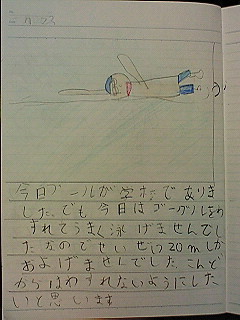 今日プールが空ホでありま
した。でも今日はゴーグルをわ
すれてうまく泳げませんでし
たなのでせいせい20mしか
およげませんでした。こんど
からはわすれないようにした
いと思います